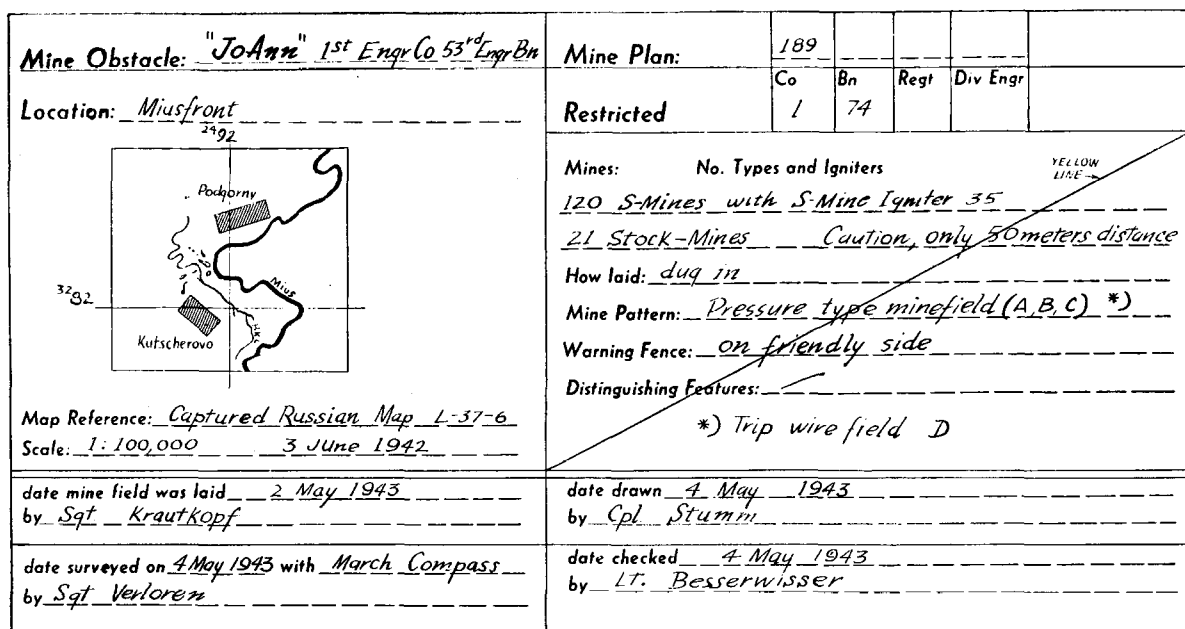 Mine Obstacle: "JoAnn" 1st Engr Co 53rd Engr Bn
Location: Miusfront
2492
Podgorny
Mius
3292
HKL
Kutscherovo
Map Reference: Captured Russian Map L-37-6
Scale: 1:100,000 3 June 1942
Mine Plan: 189
Co Bn Regt Div Engr
Restricted 1 74
Mines: No. Types and Igniters
YELLOW
LINE →
120 S-Mines with S-Mine Igniter 35
21 Stock-Mines Caution, only 50 meters distance
How laid: dug in
Mine Pattern: Pressure type minefield (A, B, C) *)
Warning Fence: on friendly side
Distinguishing Features: —
*) Trip wire field D
date mine field was laid 2 May 1943
by Sgt Krautkopf
date drawn 4 May 1943
by Cpl Stumm
date surveyed on 4 May 1943 with March Compass
by Sgt Verloren
date checked 4 May 1943
by LT. Besserwisser